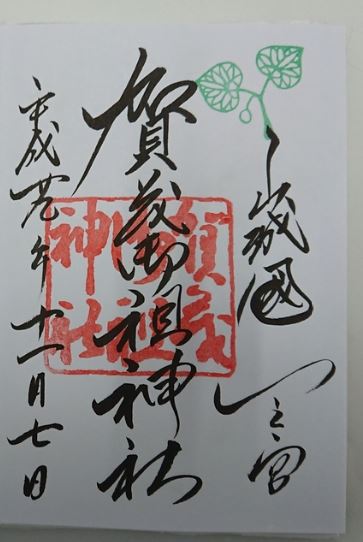 山城國一之宮
賀茂御祖神社
平成廿九年十一月七日
賀茂
御祖
神社